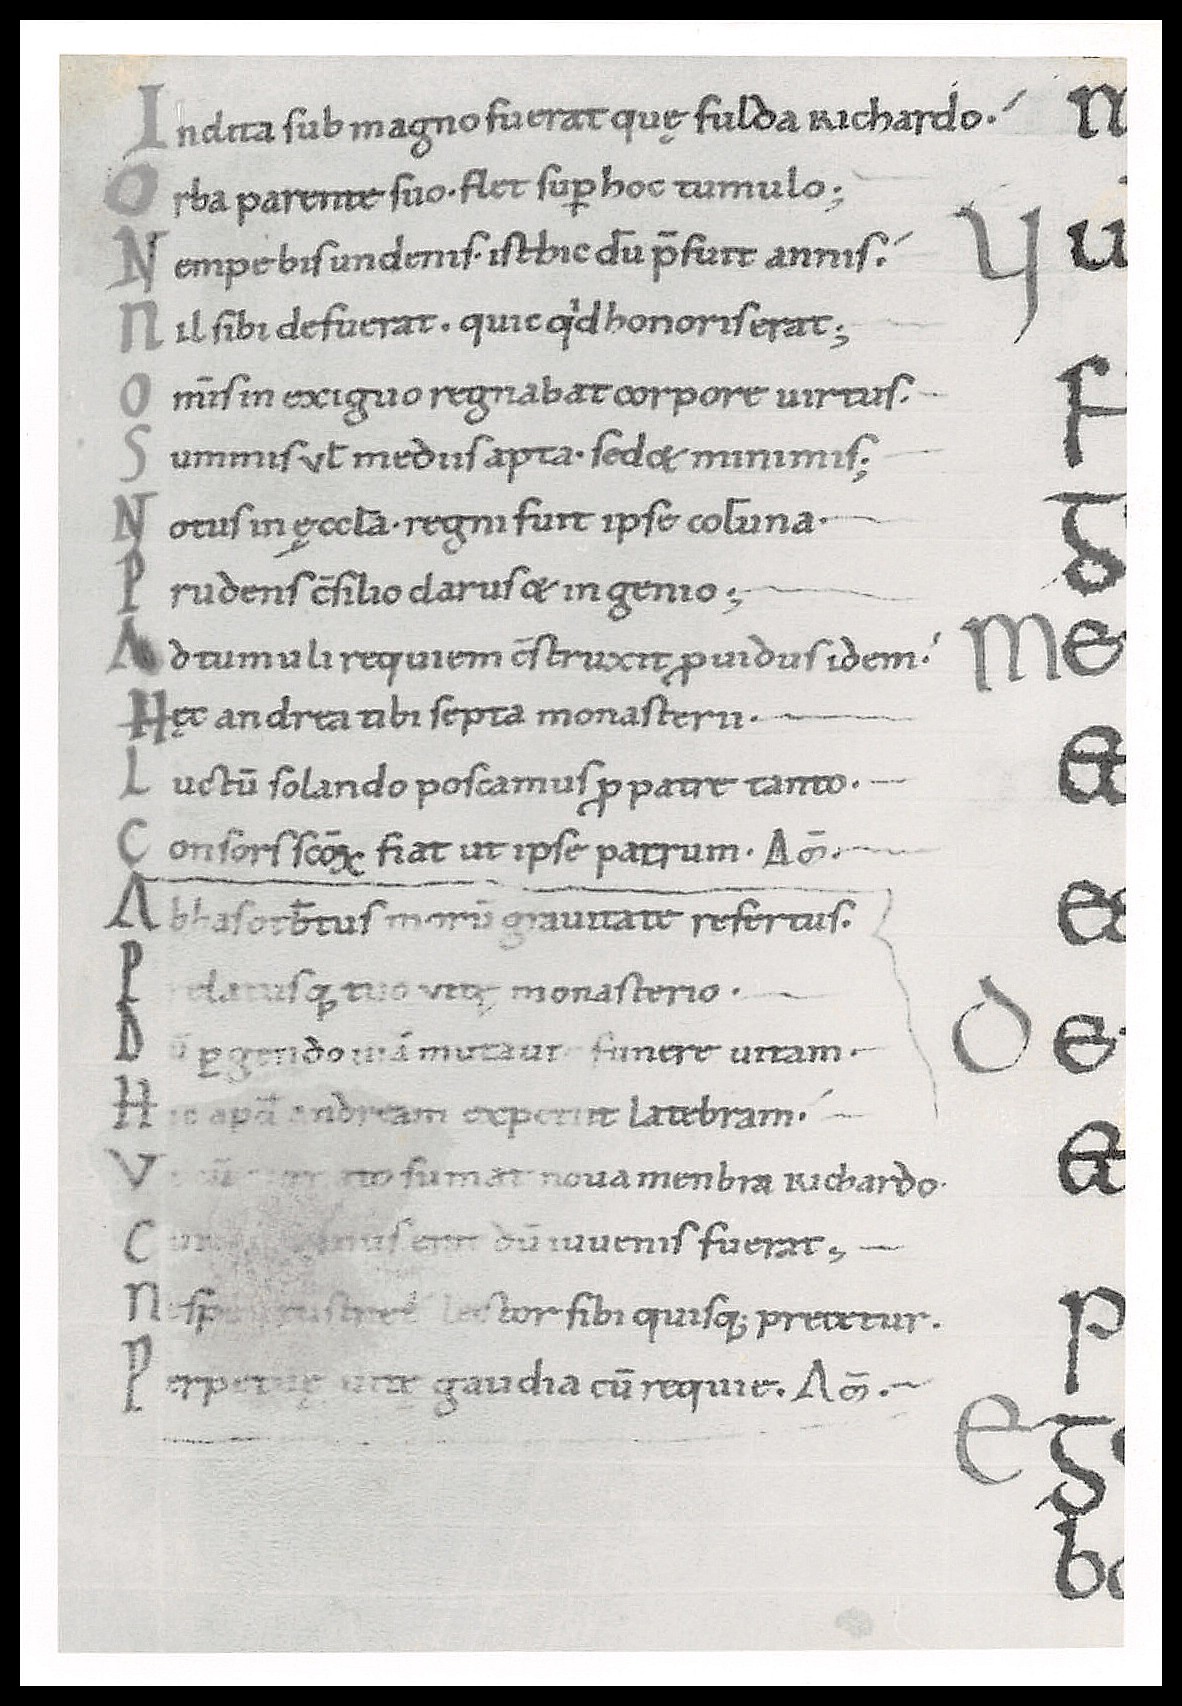 Indita sub magno fuerat quę fulda Richardo.
Orba parente suo. flet sup̱ hoc tumulo;
Nempe bis undenis. isthic dū p̄fuit annis.
Nil sibi defuerat. quic qͥd honoris erat;
Om̄is in exiguo regnabat corpore uirtus.
Summis vł mediis apta. sed & minimis;
Notus in ęccl̄a. regni fuit ipse colūna.
Prudens c̄silio clarus & in genio;
Ad tumuli requiem c̄struxit ꝓuidus idem.
Hęc andrea tibi septa monasterii.
Luctū solando poscamus ꝓ patre tanto.
Consors sc̄oꝝ fiat ut ipse patrum. Am̄.
Ab has ruƀtus morū grauitate refertus.
Prelatusq; tuo vitę monasterio.
Dū ꝑgendo uiā mutauit funere uitam.
Hic apđ andream expetiit latebram.
V sumat noua menbra Richardo
C erat dū iuuenis fuerat;
N lector sibi quisq; precetur.
Perpetuę uitę gaudia cū requie. Am̄.
n
Y u
F
g
M e
&
e
D e
&
p
E g
b